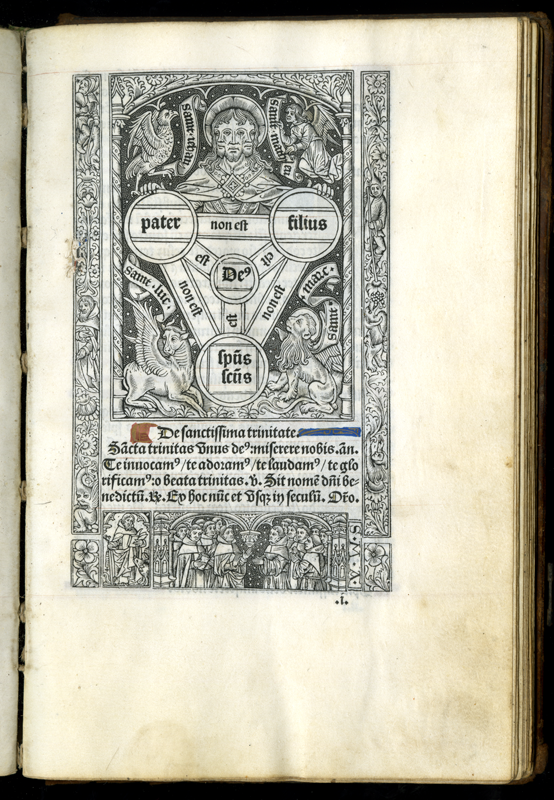 sanct. iehan
sanct. mathieu
pater non est filius
est est
De⁹
sanct. luc
non est
non est
sanct. marc
et
spūs
scūs
De sanctissima trinitate.
Sācta trinitas vnus de⁹: miserere nobis. an.
Te inuocam⁹/te adoram⁹/te laudam⁹/te glo
rificam⁹: o beata trinitas. v. Sit nomē dn̄i be-
nedictū. ꝶ. Ex hoc nūc et vsqꝫ in seculū. Or̄o.
S. M. A.
.i.